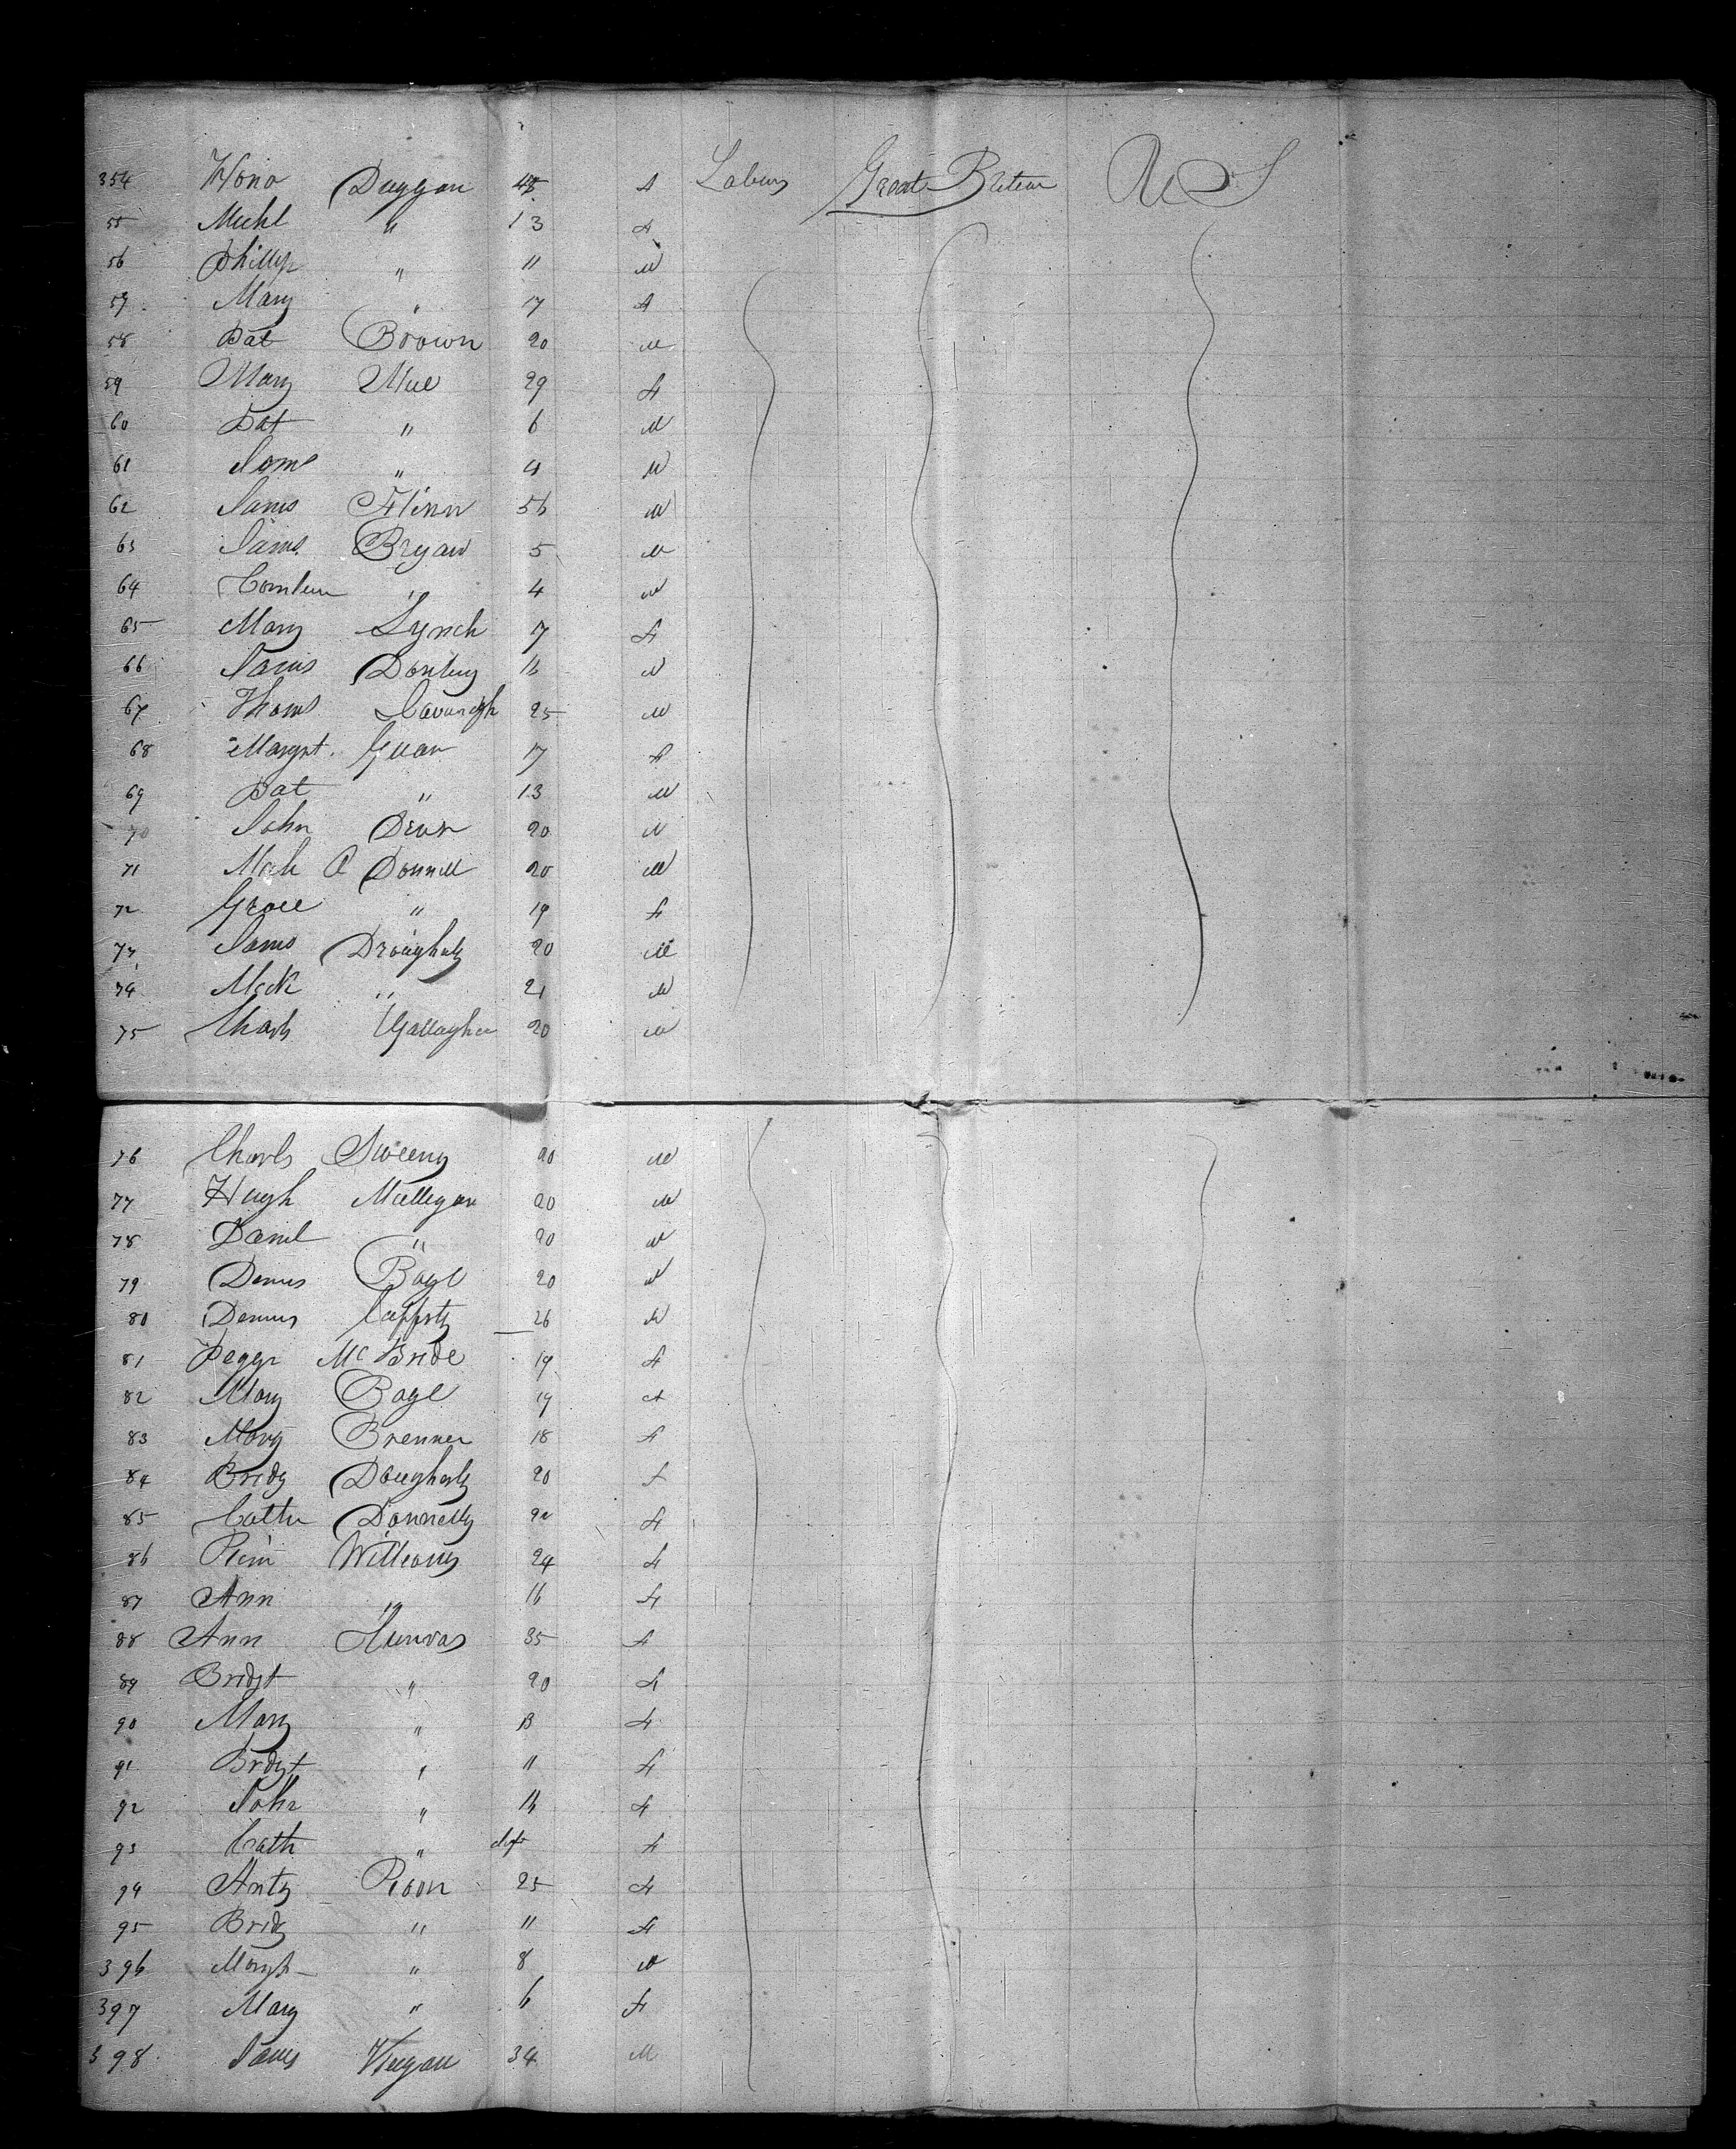 354 Hono Duggan 45 F Labours Great Britain U S
55 Michl " 13 F
56 Phillip " 11 M
57 Mary " 17 F
58 Pat Brown 20 M
59 Mary Mue 29 F
60 Pat " 6 M
61 Jams " 4 M
62 Jams Flinn 56 M
63 Jams Bryan 5 M
64 " 4 M
65 Mary Lynch 17 F
66 Jams Donley 16 M
67 Thoms Cavanagh 25 M
68 Margrt 17 F
69 Pat " 13 M
70 John Dean 20 M
71 Mich O Donnell 20 M
72 Grace " 19 F
73 Jams Droughety 20 M
74 Mick " 21 M
75 Charls Gallagher 20 M
76 Charls Sweeny 20 M
77 Hugh Mulligan 20 M
78 Danil " 20 M
79 Dennis Bayl 20 M
80 Dennis Caffrty 26 M
81 Peggy McBride 19 F
82 Mary Bayl 19 F
83 Mary Brenner 18 F
84 Bridg Dougherty 20 F
85 Cathr Donnelly 20 F
86 Williams 24 F
87 Ann " 16 F
88 Ann 35 F
89 Bridgt " 20 F
90 Mary " 13 F
91 Bridgt " 11 F
92 John " 16 F
93 Cath " F
94 Anty 25 F
95 Bridg " 11 F
396 Margt " 8 M
397 Mary " 6 F
398 Jams 34 M